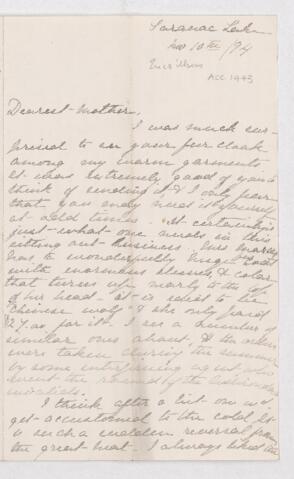 Saranac Lake
Nov 10th /94
ACC 1993
Dearest Mother,
I was much sur-
prised to see your fur cloak
among my warm garments
It was extremely good of you to
think of sending it & I only fear
that you may need it yourself
at odd times. It certainly is
just what one needs in this
sitting out business. Mrs
has a wonderfully huge coat
with enormous sleeves, & collar
that turns up nearly to the top
of her head. It is said to be
"Chinese wolf" & she only paid
for it. I see a number of
similar ones about, & the orders
were taken during the summer
by some enterprising agent who
went the rounds of the Adirondack
I think after a bit one will
get accustomed to the cold, It
is such a sudden reversal from
the great heat. I always liked the